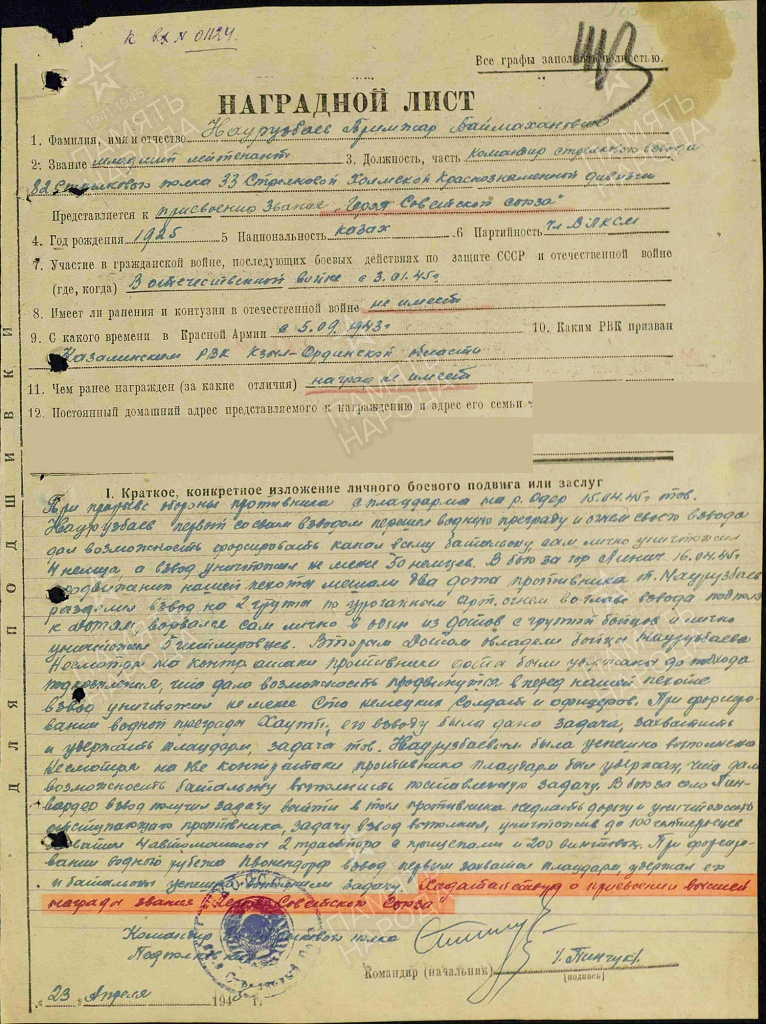 К вх N 01124
Все графы заполнять полностью.
НАГРАДНОЙ ЛИСТ
1. Фамилия, имя и отчество Наурузбаев Примжар Баймаханович
2. Звание младший лейтенант 3. Должность, часть командир стрелкового взвода
82 Стрелкового полка 33 Стрелковой Холмской Краснознаменной дивизии
Представляется к присвоению звание „Героя Советского союза"
4. Год рождения 1925 5 Национальность казах 6 Партийность чл ВЛКСМ
7. Участие в гражданской войне, последующих боевых действиях по защите СССР и отечественной войне
(где, когда) В отечественной войне с 3.01.45г
8. Имеет ли ранения и контузии в отечественной войне не имеет
9. С какого времени в Красной Армии с 5.09.1943г 10. Каким РВК призван
Казалинским РВК Кзыл-Ординской области
11. Чем ранее награжден (за какие отличия) наград не имеет
12. Постоянный домашний адрес представляемого к награждению и адрес его семьи
ДЛЯ ПОДШИВКИ
I. Краткое, конкретное изложение личного боевого подвига или заслуг
При прорыве обороны противника с плацдарма на р. Одер 15.04.45г тов.
Наурузбаев первый со своим взводом перешел водную преграду и огнем своего взвода
дал возможность форсировать канал всему батальону сам лично уничтожил
4 немца, а взвод уничтожил не менее 50 немцев. В бою за гор 16.04.45г
продвижению нашей пехоты мешали два дота противника т. Наурузбаев
разделил взвод на 2 группы под ураганным арт. огнем во главе взвода
к дотам, ворвался сам лично в один из дотов с группой бойцов и лично
уничтожил 5 гитлеровцев. Вторым Дотом овладели бойцы Наурузбаева
Несмотря на контратаки противника доты были удержаны до подхода
подкрепления, что дало возможность продвинуться вперед нашей пехоте
взвод уничтожил не менее Сто немецких солдат и офицеров. При форсиро-
вании водной преграды его взводу была дана задача, захватить
и удержать плацдарм, задача тов. Наурузбаевым была успешно выполнена
Несмотря на все контратаки противника плацдарм был удержан, что дало
возможность батальону выполнить поставленную задачу. В бою за село
взвод получил задачу выйти в тыл противника дорогу и уничтожить
отступающего противника, задачу взвод выполнил, уничтожив до 100 гитлеровцев
4 автомашины 2 трактора с прицепами и 200 винтовок. При форсиро-
вании водного рубежа взвод первым захватил плацдарм удержал его
и батальон успешно выполнил задачу. Ходатайствую о присвоении высшей
награды звания „Героя Советского Союза"
Командир 82 Стрелкового полка
Подполковник
Командир (начальник) /Пинчук/
(подпись)
„23" Апреля 1945 г.
ПАМЯТЬ НАРОДА